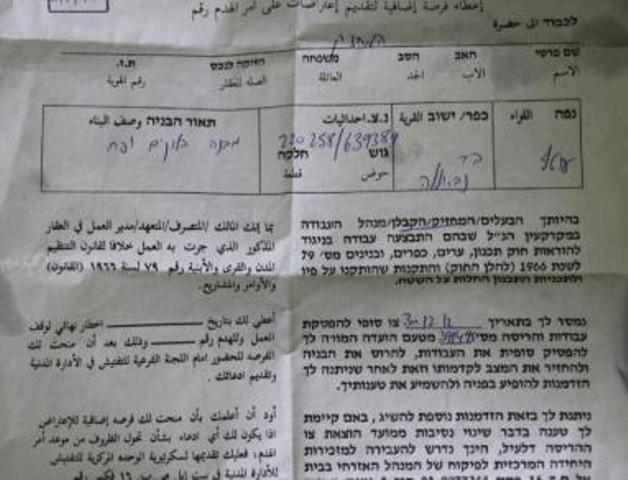 إعطاء فرصة إضافية لتقديم إعتراضات على أمر الهدم رقم
לכבוד الى حضرة
המחזיק
שם פרטי האב הסב משפחה הזיקה לנכס ת.ז.
الاسم الاب الجد العائلة الصله للعقار رقم الهوية
נפה اللواء כפר/ ישוב القرية נ.צ. احداثيات תאור הבניה وصف البناء
220258/639389
גוש חלקה
حوض قطعة
בהיותך הבעלים/המחזיק/הקבלן/מנהל העבודה
במקרקעין הנ"ל שבהם התבצעה עבודה בניגוד
להוראות חוק תכנון, ערים, כפרים, ובנינים מס' 79
לשנת 1966 (להלן החוק) והתקנות שהותקנו על פיו
ולתכניות החלות על השטח.
נמסר לך בתאריך צו סופי להפסקת
עבודות והריסה מס' מטעם הועדה המורה לך
להפסיק סופית את העבודות, להרוס את הבניה
ולהחזיר את המצב לקדמותו וזאת לאחר שניתנה לך
הזדמנות להופיע בפניה ולהשמיע את טענותיך.
ניתנת לך בזאת הזדמנות נוספת להשיג, באם קיימת
לך טענה בדבר שינוי נסיבות ממועד הוצאת צו
ההריסה דלעיל, הינך נדרש להעבירה למזכירות
היחידה המרכזית לפיקוח של המנהל האזרחי בבית
بما إنك المالك /المتصرف/المتعهد/مدير العمل في العقار
المذكور الذي جرت به العمل خلافا لقانون التنظيم
المدن والقرى والأبنية رقم ٧٩ لسنة ١٩٦٦ (القانون)
والأوامر والمشاريع.
أعطي لك بتاريخ اخطار نهائي لوقف
العمل وللهدم رقم وذلك بعد أن منحت لك
الفرصه للحضور امام اللجنة الفرعية للتفتيش في الأدارة المدنية
وتقديم ادعائك.
أود أن أعلمك بأن منحت لك فرصه إضافية للإعتراض
اذا يكون لك أي ادعاء بشأن تحول الظروف من موعد أمر
الهدم، فعليك تقديمها لسكرتيرية الوحده المركزية للتفتيش
للأدارة المدنية في بيت إيل